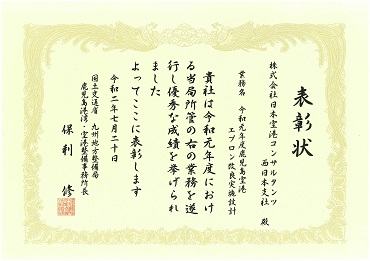 表彰状
株式会社日本空港コンサルタンツ
西日本支社 殿
業務名 令和元年度鹿児島空港
エプロン改良実施設計
貴社は令和元年度におけ
る当局所管の右の業務を遂
行し優秀な成績を挙げられ
ました
よってここに表彰します
令和二年七月二十日
国土交通省 九州地方整備局
鹿児島港湾・空港整備事務所長
保利 修